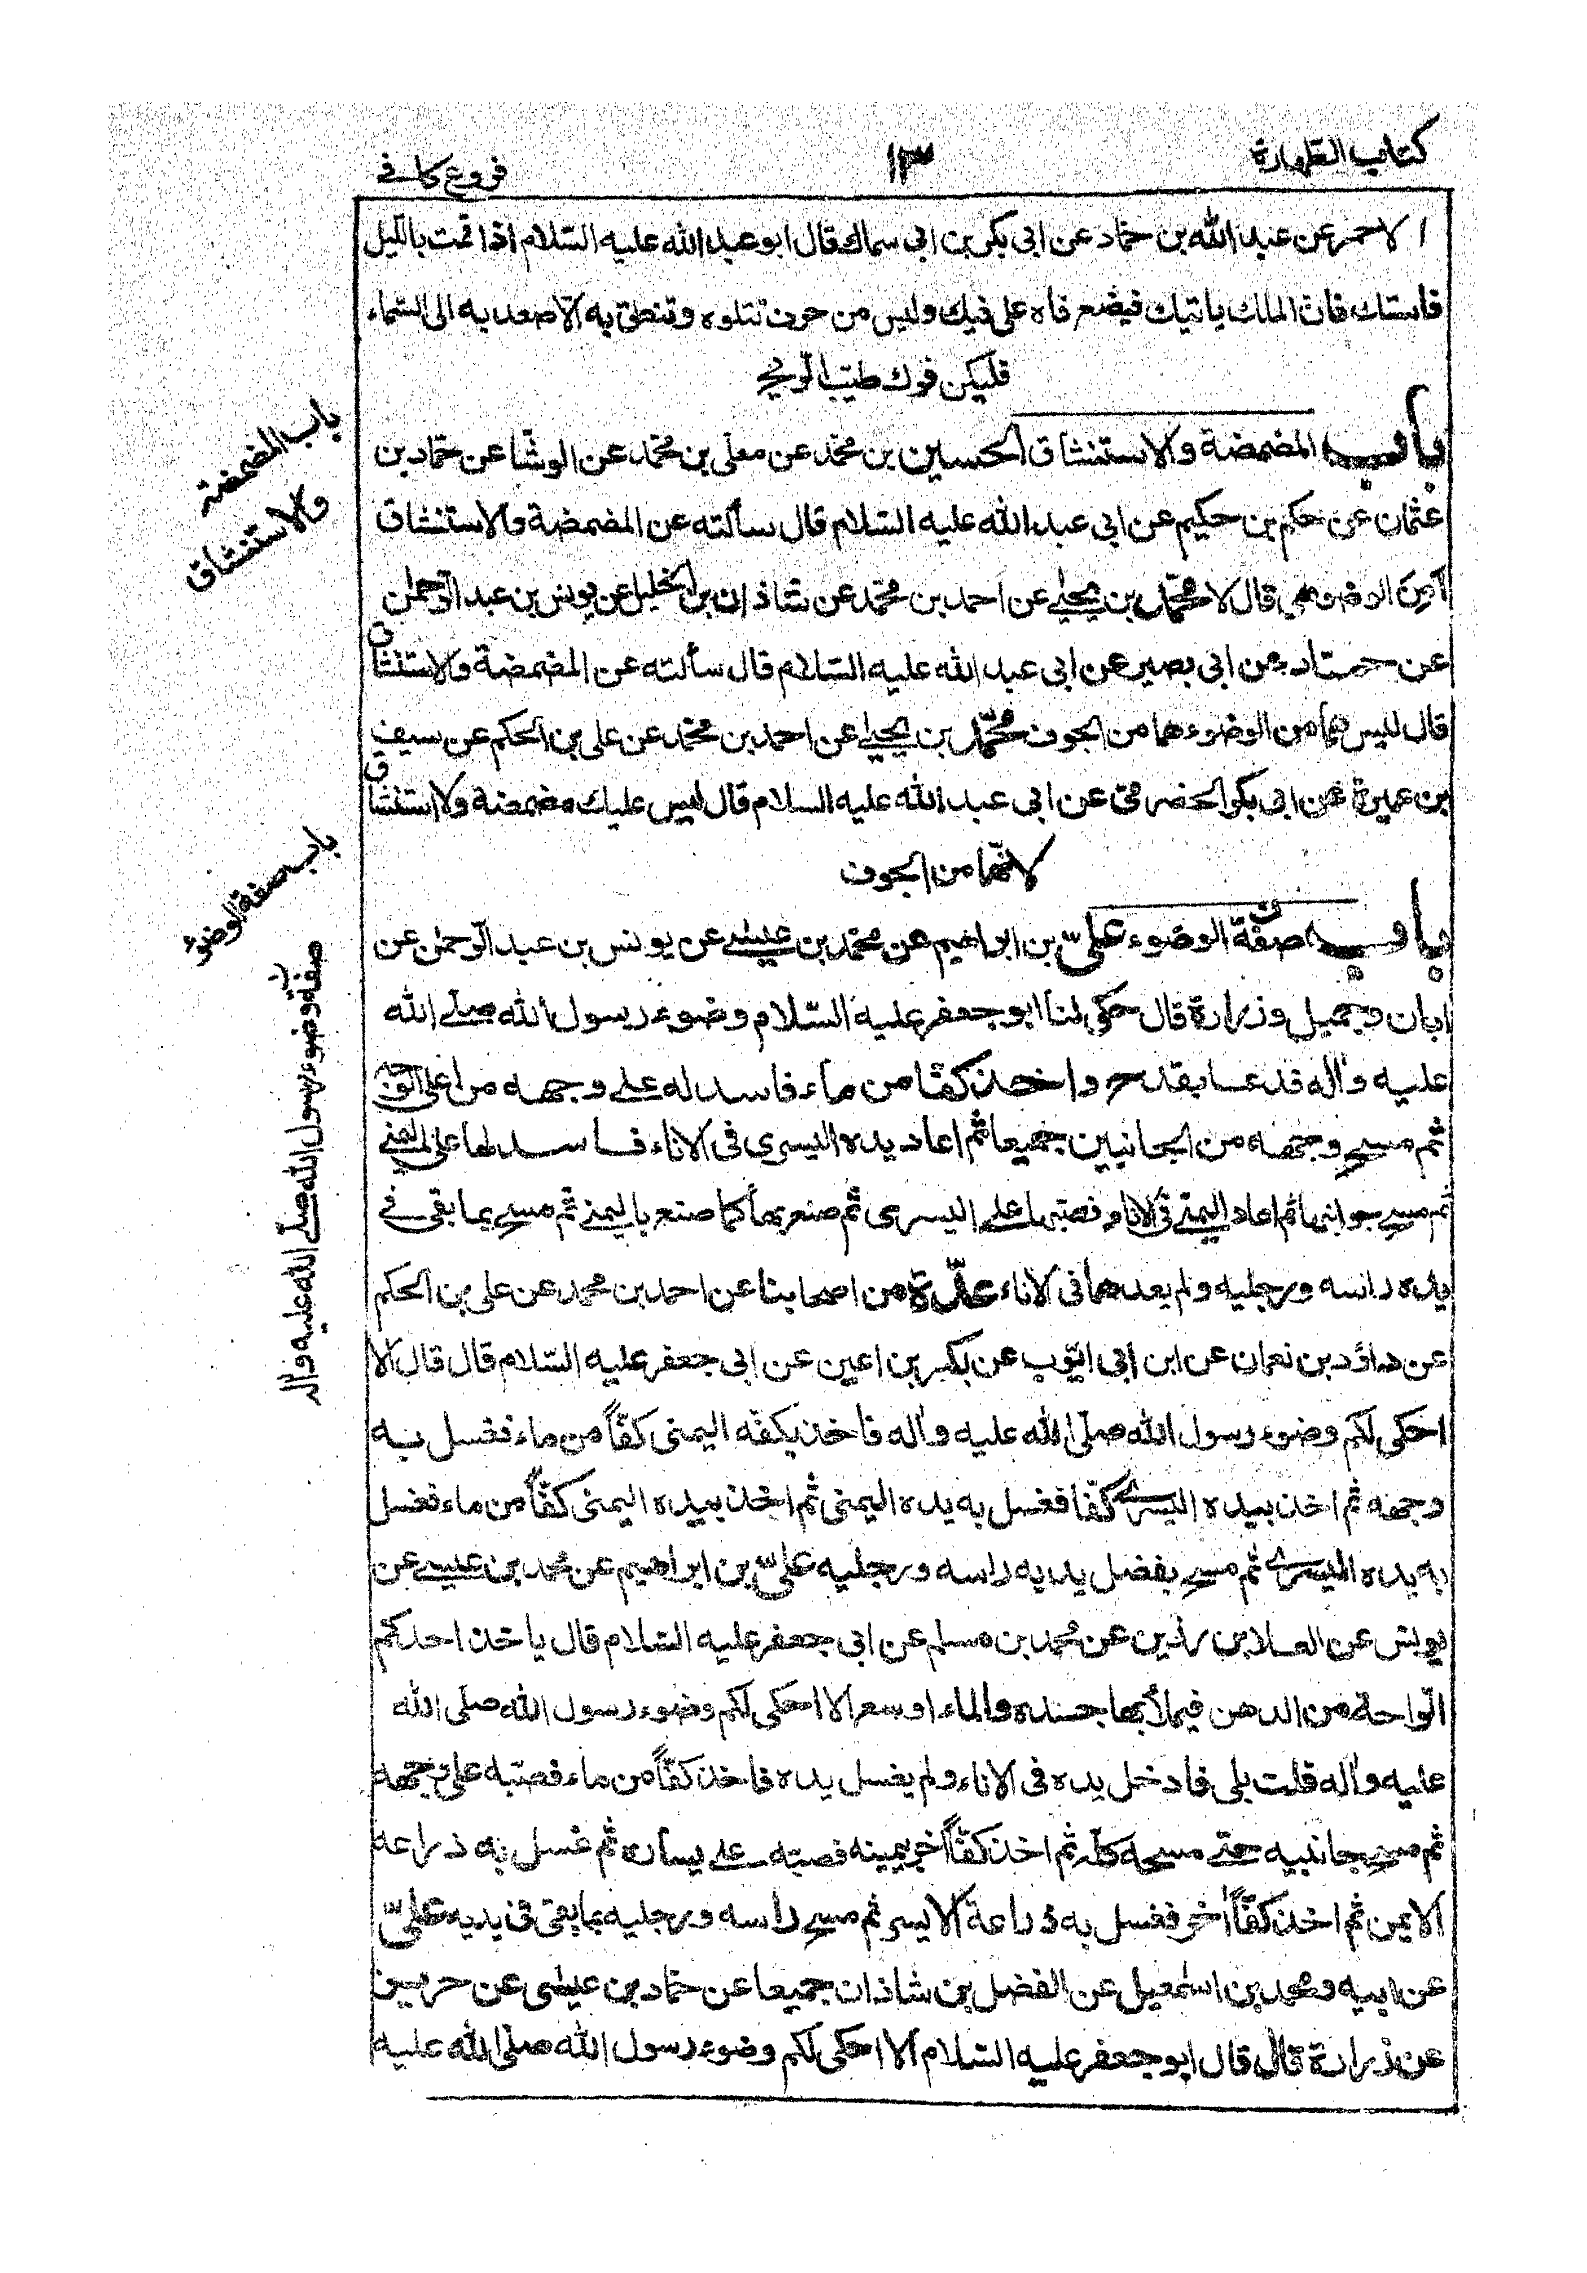 كتاب الطهارة
١٣
فروع كافي
الاحمر عن عبد الله بن حماد عن ابي بكر بن ابي سماك قال ابو عبد الله عليه السّلام اذا قمت بالليل
فاستاك فان الملك ياتيك فيضع فاه على فيك وليس من حرف تتلوه وتنطق به الا صعد به الى السّماء
فليكن فوك طيّب الريح
باب المضمضة والاستنشاق الحسين بن محمّد عن معلّى بن محمّد عن الوشّا عن حمّاد بن
عثمان عن حكم بن حكيم عن ابي عبد الله عليه السّلام قال سألته عن المضمضة والاستنشاق
أمن الوضوء هي قال لا محمّد بن يحيى عن احمد بن محمّد عن شاذان بن الخليل عن يونس بن عبد الرّحمن
عن حماد عمن ابي بصير عن ابي عبد الله عليه السّلام قال سألته عن المضمضة والاستنشاق
قال ليس هما من الوضوء هما من الجوف محمّد بن يحيى عن احمد بن محمّد عن علي بن الحكم عن سيف
بن عميرة عن ابي بكر الحضرمي عن ابي عبد الله عليه السلام قال ليس عليك مضمضة ولا استنشاق
لانّهما من الجوف
باب صفة الوضوء علىّ بن ابراهيم عن محمّد بن عيسى عن يونس بن عبد الرّحمن عن
ابان وجميل وزرارة قال حكى لنا ابو جعفر عليه السّلام وضوء رسول الله صلى الله
عليه واله فدعا بقدح واخذ كفّا من ماء فاسدله على وجهه من اعلى الوجه
ثم مسح وجهه من الجانبين جميعا ثم اعاد يده اليسرى في الاناء فاسدلها على اليمنى
ثم مسح جوانبها ثم اعاد اليمنى في الاناء فصبّها على اليسرى ثم صنع بها كما صنع باليمنى ثم مسح بما بقى في
يده راسه ورجليه ولم يعدهما في الاناء عدّة من اصحابنا عن احمد بن محمد عن علي بن الحكم
عن داؤد بن نعمان عن ابن ابي ايّوب عن بكير بن اعين عن ابي جعفر عليه السّلام قال قال الا
احكي لكم وضوء رسول الله صلّى الله عليه واله فاخذ بكفّه اليمنى كفّاً من ماء فغسل به
وجهه ثم اخذ بيده اليسرى كفّا فغسل به يده اليمنى ثم اخذ بيده اليمنى كفّاً من ماء فغسل
به يده اليسرى ثم مسح بفضل يديه راسه ورجليه علىّ بن ابراهيم عن محمد بن عيسى عن
يونس عن العلا بن رزين عن محمد بن مسلم عن ابي جعفر عليه السّلام قال ياخذ احدكم
الرّاحة من الدهن فيملأ بها جسده والماء اوسع الا احكي لكم وضوء رسول الله صلّى الله
عليه واله قلت بلى فادخل يده في الاناء ولم يغسل يده فاخذ كفّاً من ماء فصبّه على وجهه
ثم مسح جانبيه حتى مسحه كلّه ثم اخذ كفّاً اخر بيمينه فصبّه على يساره ثم غسل به ذراعه
الايمن ثم اخذ كفّاً اخر فغسل به ذراعه الايسر ثم مسح راسه ورجليه بما بقي في يديه علىّ
عن ابيه ومحمد بن اسمعيل عن الفضل بن شاذان جميعا عن حمّاد بن عيسى عن حريز
عن زرارة قال قال ابو جعفر عليه السّلام الا احكي لكم وضوء رسول الله صلّى الله عليه
باب المضمضة
والاستنشاق
باب صفة الوضوء
صفة وضوء رسول الله صلّى الله عليه واله